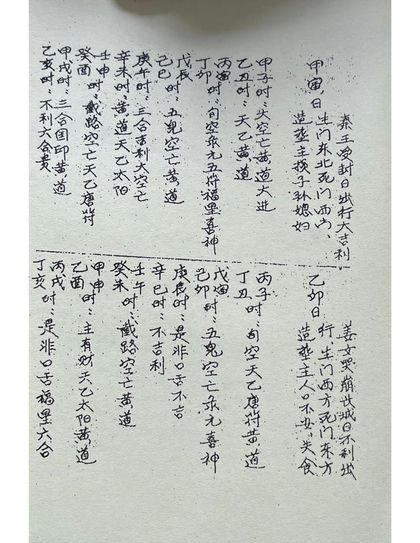 秦王受封日出行大吉利
甲寅,日生门东北死门西南,
造葬主损子孙媳妇
甲子时:大空亡黄道大进
乙丑时:天乙黄道
丙寅
丁卯时:旬空杀九五符福星喜神
戊辰
己巳时:五鬼空亡黄道
庚午时:三合吉利大空亡
辛未时:黄道天乙太阳
壬申
癸酉时:截路空亡天乙唐符
甲戌时:三合国印黄道
乙亥时:不利六合贵
姜女哭崩长城日不利出
乙卯日行生门西方死门东方
造葬主人口不安,失食
丙子时
丁丑时:旬空天乙唐符黄道
戊寅
己卯时:五鬼空亡杀九喜神
庚辰时:是非口舌不吉
辛巳时:不吉利
壬午
癸未时:截路空亡黄道
甲申时:主有财天乙太阳黄道
乙酉
丙戌时
丁亥时:是非口舌福星六合